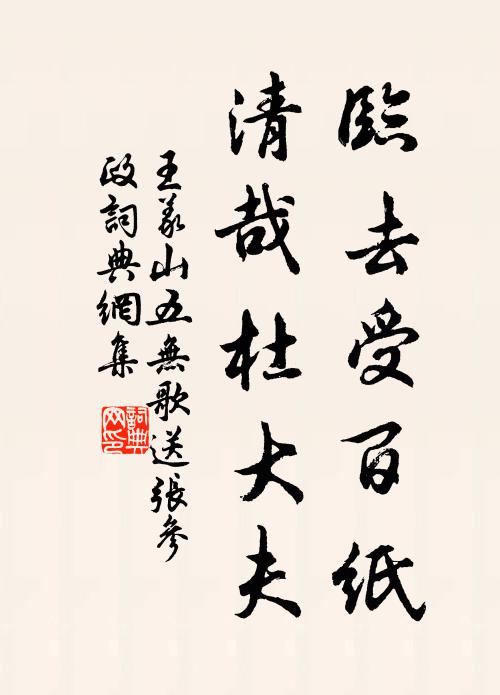 臨去受百紙
清哉杜大夫
王義山五無歌送張參
政詞典網集
詞典
网印